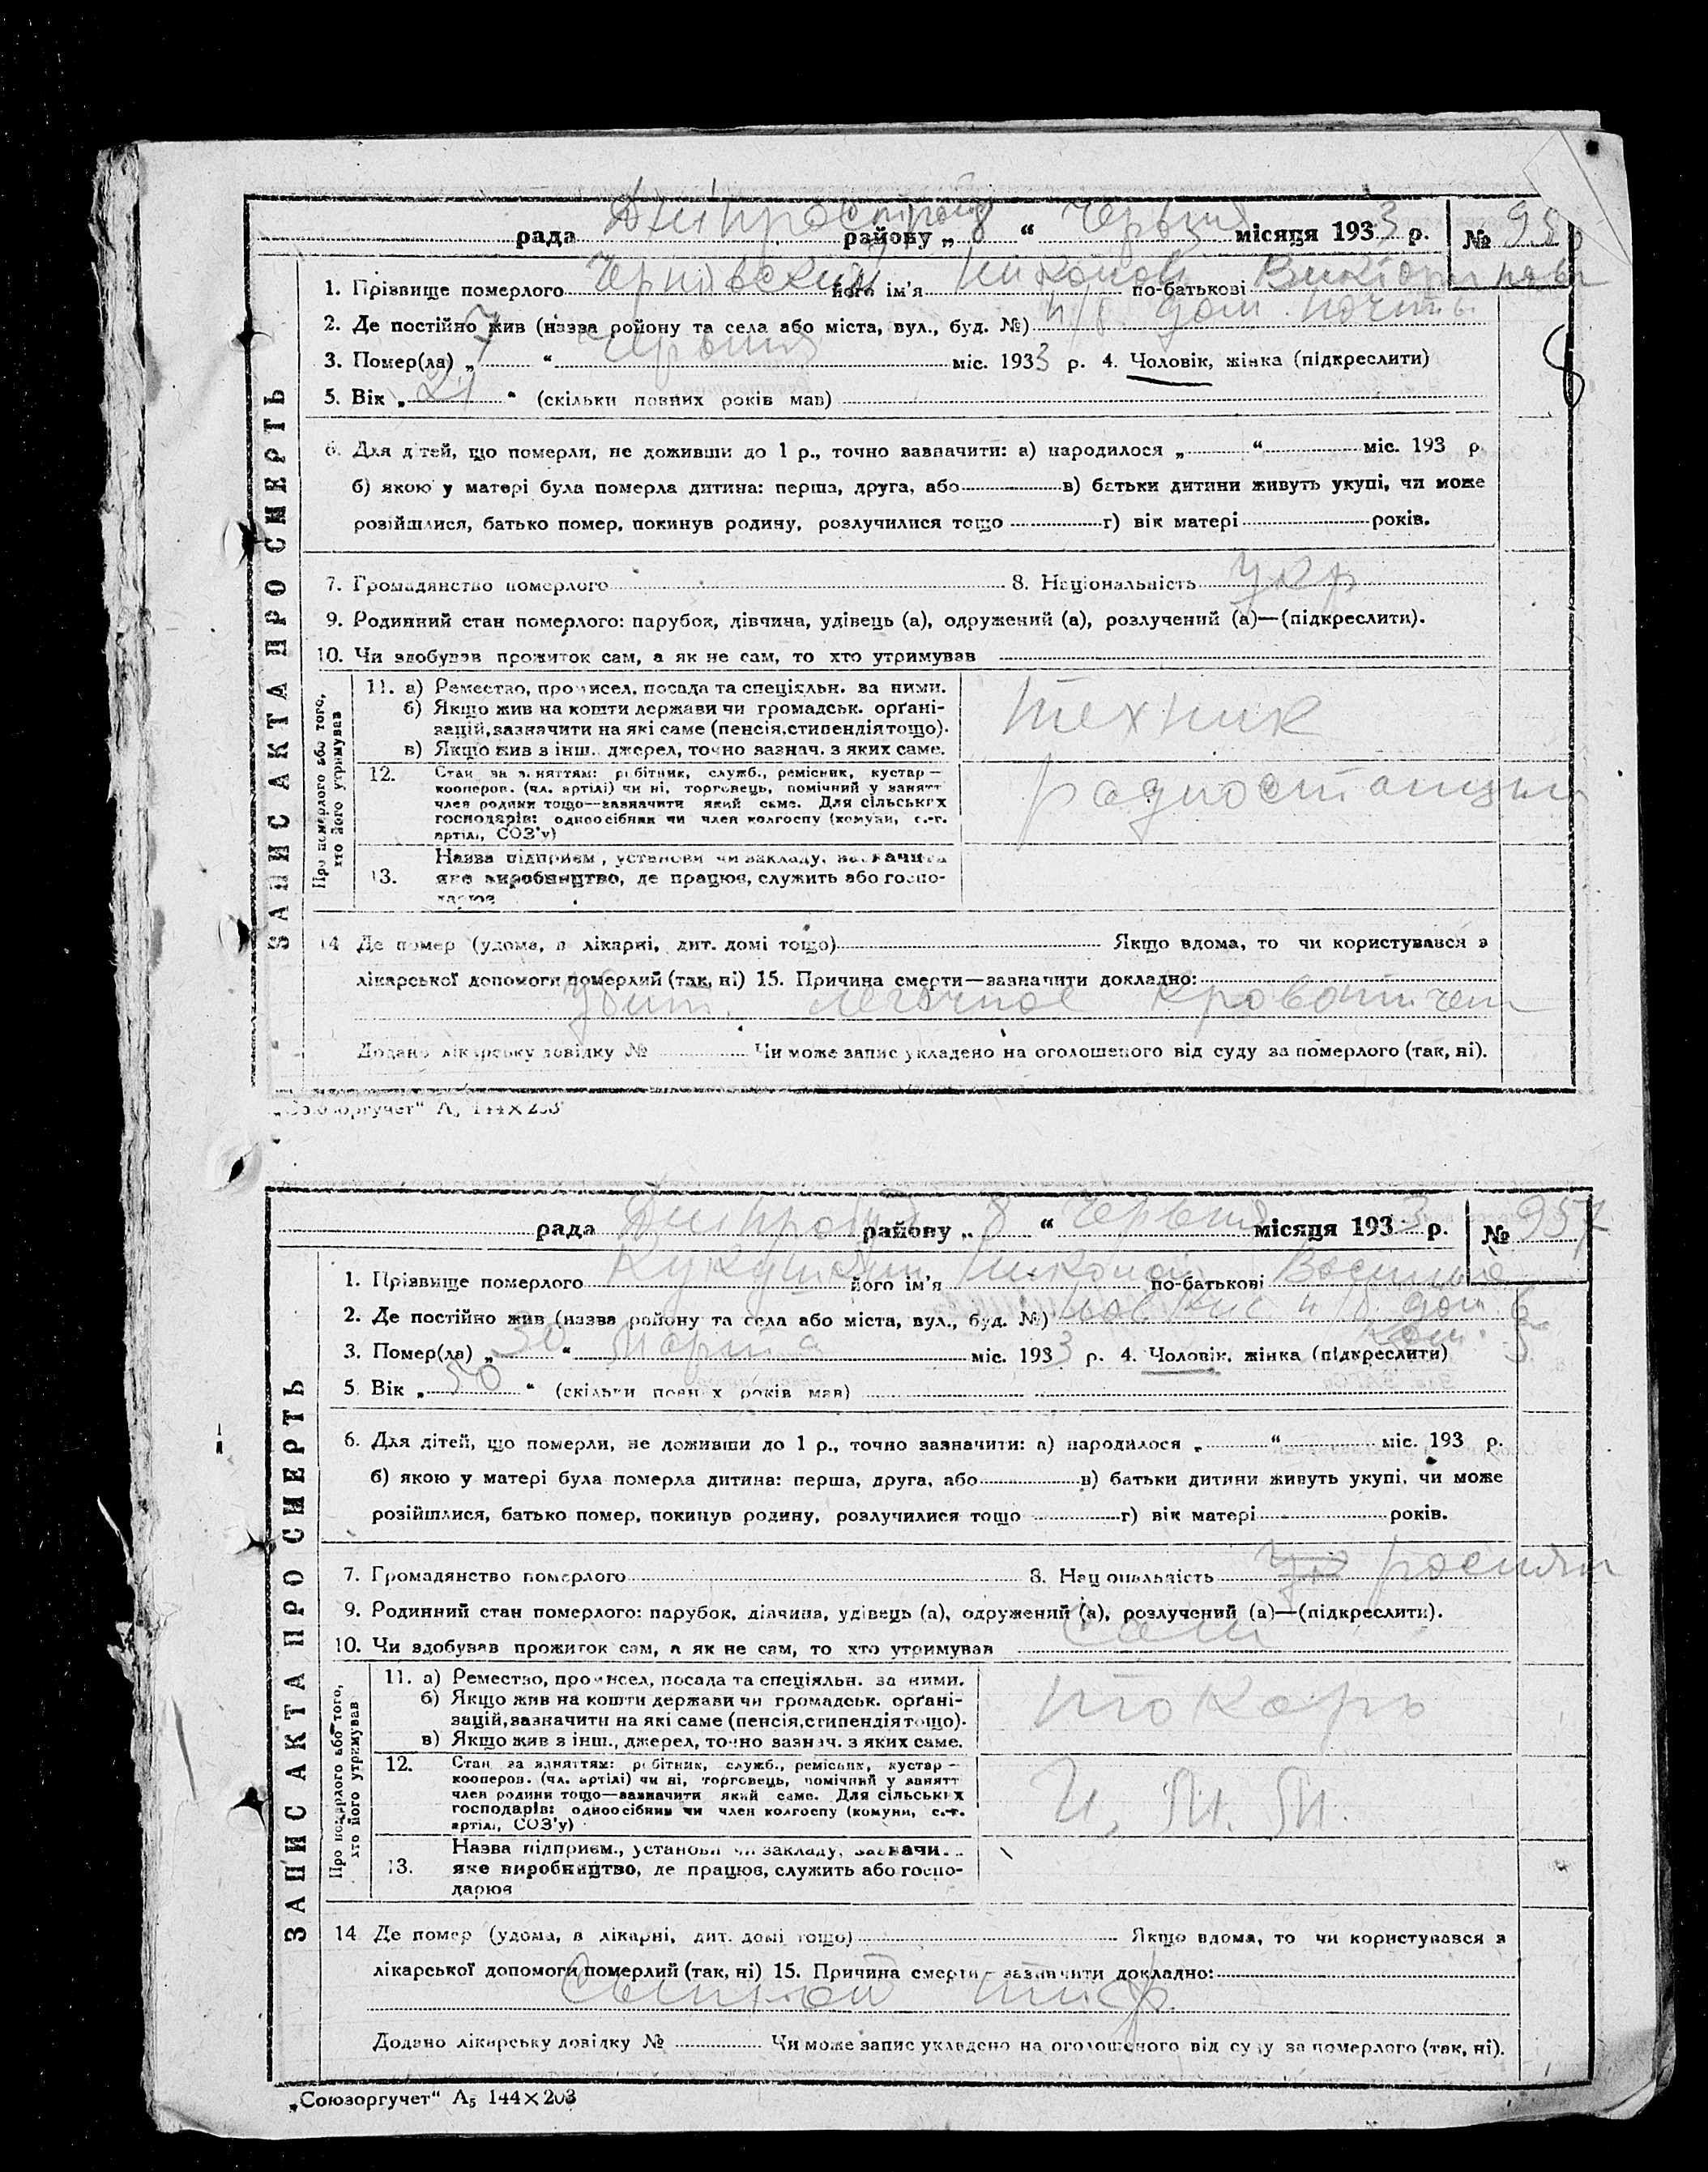 рада Дніпровськ району „ 8 “ Червня місяця 1933 р. № 956
1. Прізвище померлого його ім'я Николай по-батькові
2. Де постійно жив (назва ройону та села або міста, вул., буд. №) п/б. дом.
3. Помер(ла) „ 7 “ Червня міс. 1933 р. 4. Чоловік, жінка (підкреслити)
5. Вік „ 21 “ (скільки повних років мав)
6. Для дітей, що померли, не доживши до 1 р., точно зазначити: а) народилося „ “ міс. 193 р.
б) якою у матері була померла дитина: перша, друга, або в) батьки дитини живуть укупі, чи може
розійшлися, батько помер, покинув родину, розлучилися тощо г) вік матері років.
7. Громадянство померлого 8. Національність укр
9. Родинний стан померлого: парубок, дівчина, удівець (а), одружений (а), розлучений (а)—(підкреслити).
10. Чи здобував прожиток сам, а як не сам, то хто утримував
ЗАПИС АКТА ПРО СМЕРТЬ
Про померлого або того,
хто його утримував
11. а) Ремество, промисел, посада та спеціяльн. за ними.
б) Якщо жив на кошти держави чи громадськ. органі-
зацій, зазначити на які саме (пенсія, стипендія тощо).
в) Якщо жив з інш. джерел, точно зазнач. з яких саме.
техник
12. Стан за заняттям: робітник, служб., ремісник, кустар —
кооперов. (чл. артілі) чи ні, торговець, помічний у занятт
член родини тощо—зазначити який саме. Для сільських
господарів: одноосібник чи член колгоспу (комуни, с.-г.
артілі, СОЗ'у)
радиостанции
13. Назва підприєм., установи чи закладу, зазначити
яке виробництво, де працює, служить або госпо-
дарює
14 Де помер (удома, в лікарні, дит. домі тощо) Якщо вдома, то чи користувався з
лікарської допомоги померлий (так, ні) 15. Причина смерти—зазначити докладно:
легочное кровотичен
Додано лікарську довідку № Чи може запис укладено на оголошеного від суду за померлого (так, ні).
„Союзоргучет“ А5 144×203
рада району „ 8 “ Червня місяця 1933 р. № 957
1. Прізвище померлого Кукушкин його ім'я Николай по-батькові
2. Де постійно жив (назва ройону та села або міста, вул., буд. №) п/б. дом. 6
ком. 5
3. Помер(ла) „ 30 “ Марта міс. 1933 р. 4. Чоловік, жінка (підкреслити)
5. Вік „ 50 “ (скільки повних років мав)
6. Для дітей, що померли, не доживши до 1 р., точно зазначити: а) народилося „ “ міс. 193 р.
б) якою у матері була померла дитина: перша, друга, або в) батьки дитини живуть укупі, чи може
розійшлися, батько помер, покинув родину, розлучилися тощо г) вік матері років.
7. Громадянство померлого 8. Національність укр росиян
9. Родинний стан померлого: парубок, дівчина, удівець (а), одружений (а), розлучений (а)—(підкреслити).
10. Чи здобував прожиток сам, а як не сам, то хто утримував Сам
ЗАПИС АКТА ПРО СМЕРТЬ
Про померлого або того,
хто його утримував
11. а) Ремество, промисел, посада та спеціяльн. за ними.
б) Якщо жив на кошти держави чи громадськ. органі-
зацій, зазначити на які саме (пенсія, стипендія тощо).
в) Якщо жив з інш., джерел, точно зазнач. з яких саме.
токарь
12. Стан за заняттям: робітник, служб., ремісник, кустар —
кооперов. (чл. артілі) чи ні, торговець, помічний у занятт
член родини тощо—зазначити який саме. Для сільських
господарів: одноосібник чи член колгоспу (комуни, с.-г.
артілі, СОЗ'у)
13. Назва підприєм., установи чи закладу, зазначи...
яке виробництво, де працює, служить або госпо-
дарює
14 Де помер (удома, в лікарні, дит. домі тощо) Якщо вдома, то чи користувався з
лікарської допомоги померлий (так, ні) 15. Причина смерти—зазначити докладно:
Сыпной тиф
Додано лікарську довідку № Чи може запис укладено на оголошеного від суду за померлого (так, ні).
„Союзоргучет“ А5 144×203